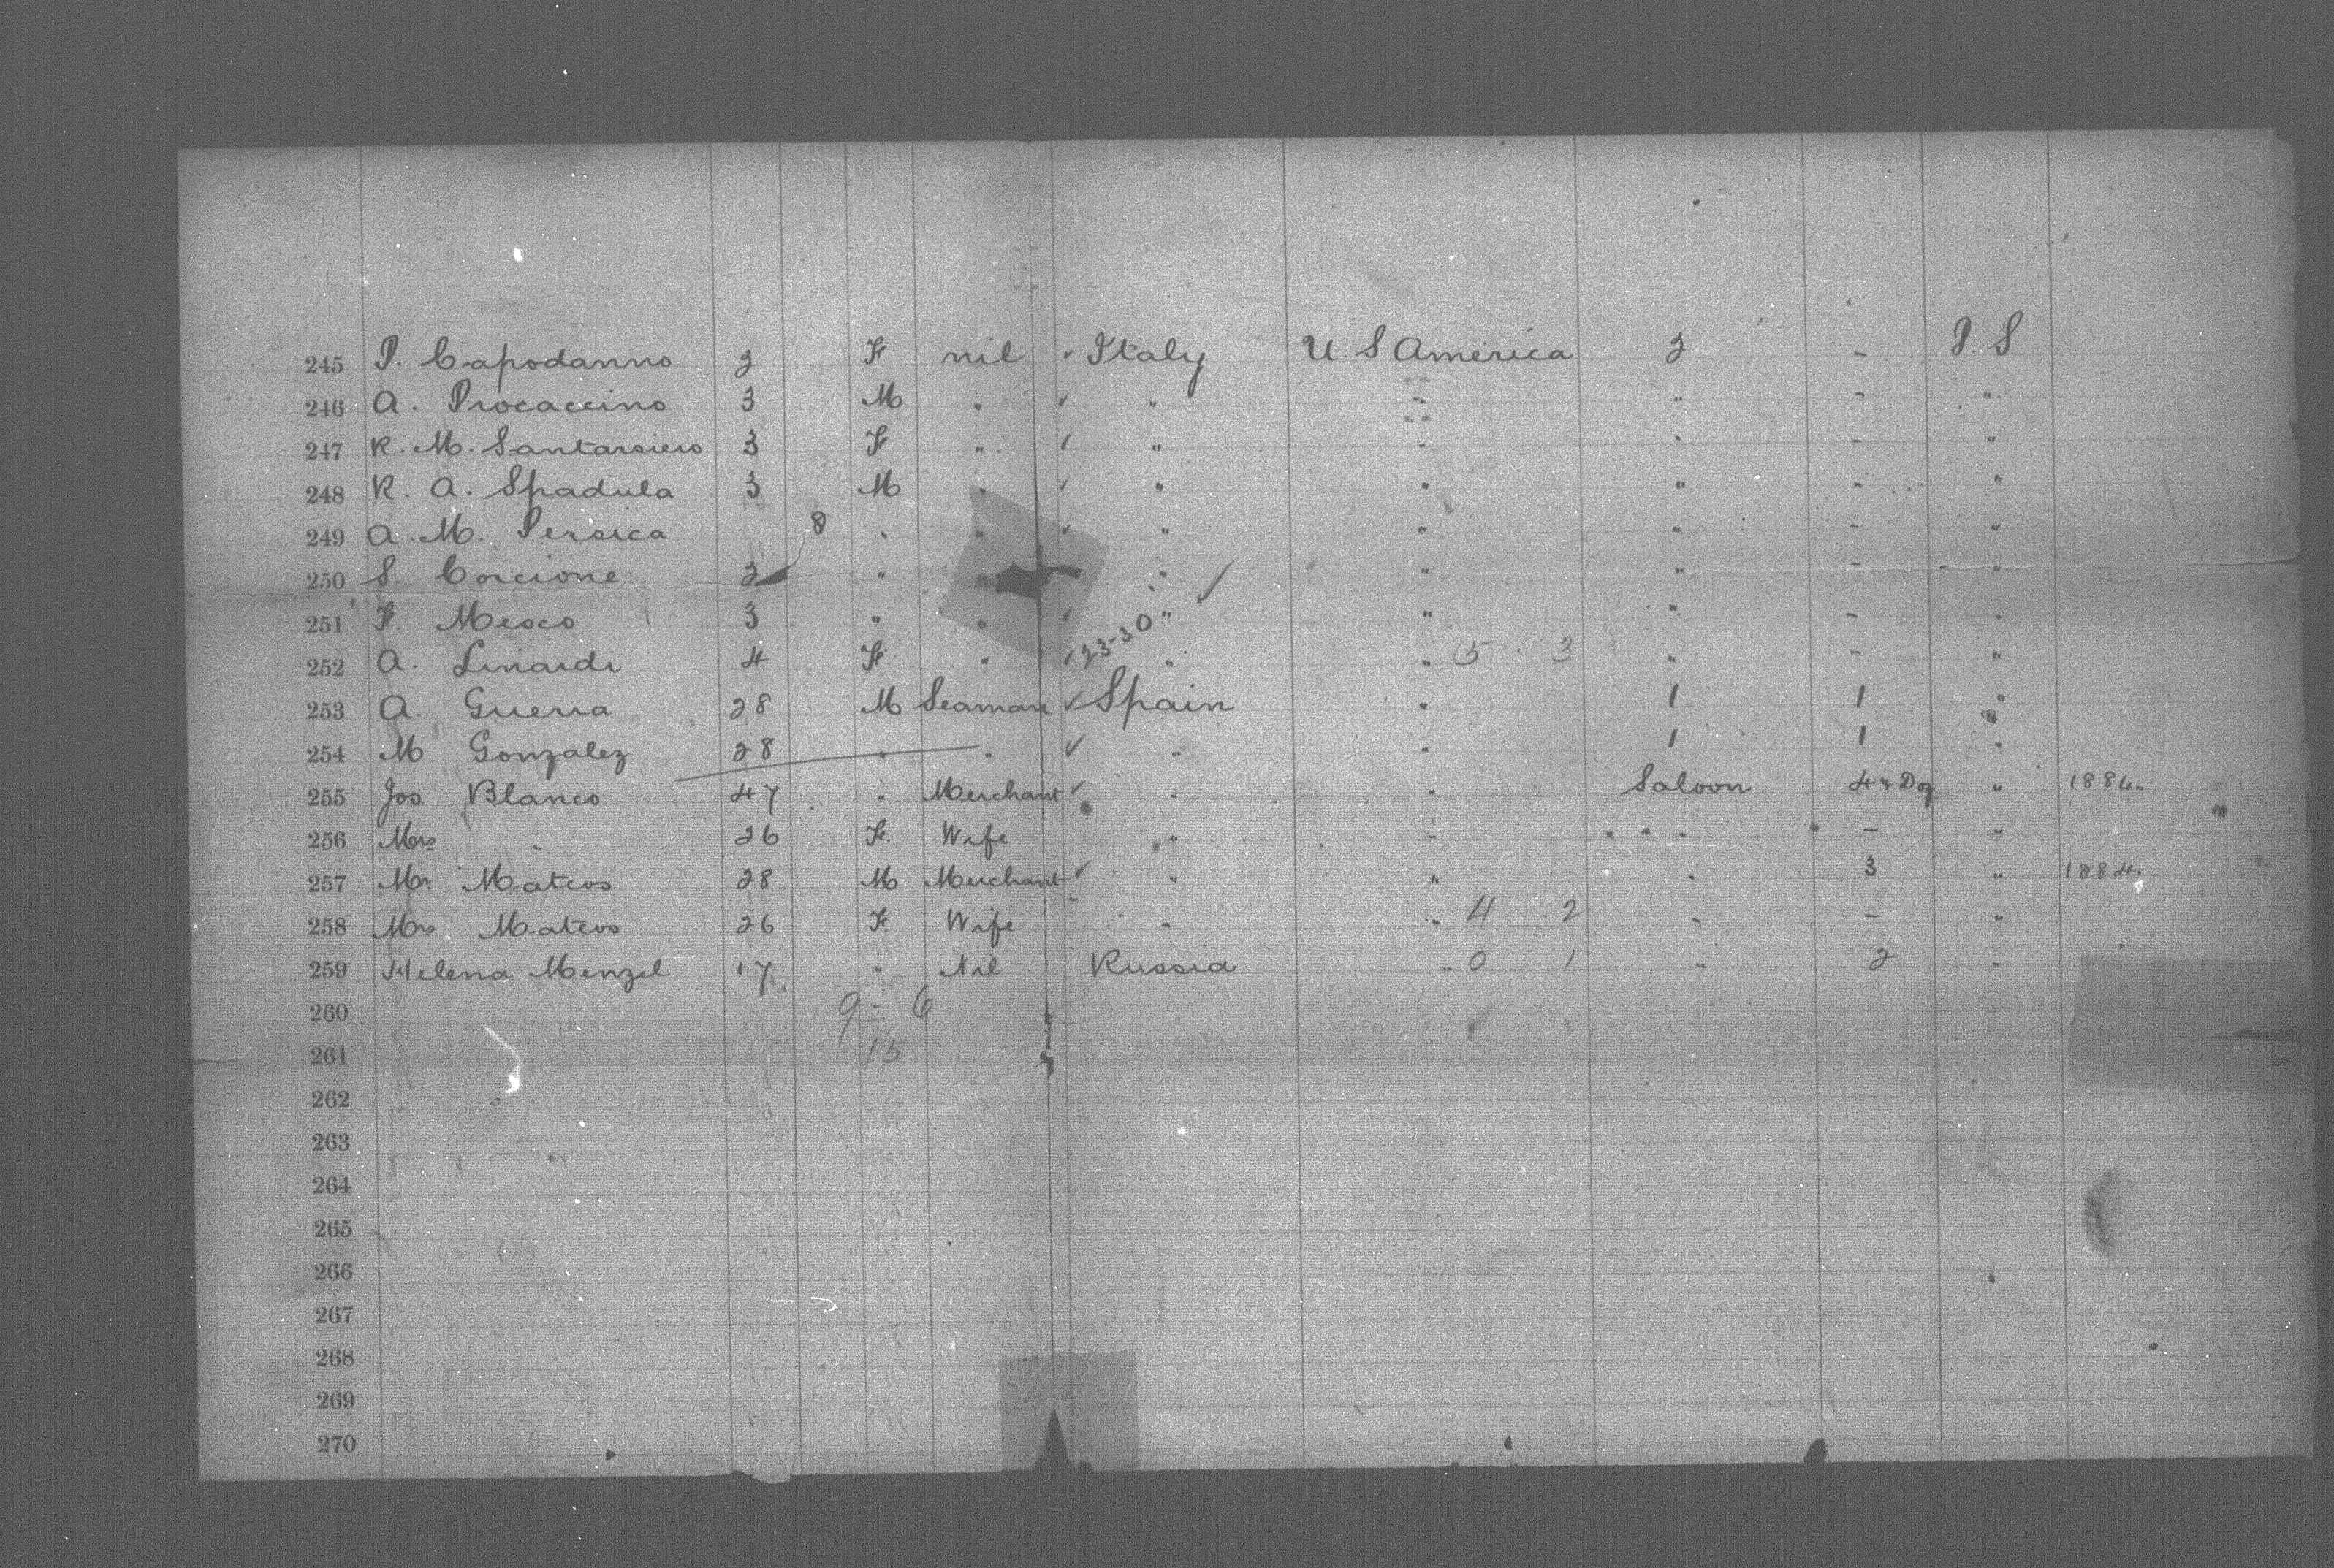 245 P. Capodanno 2 F nil ✓ Italy U. S America 2 - P. S
246 A. Procaccino 3 M " ✓ " " " - "
247 R. M. Santarsiero 3 F " ✓ " " " - "
248 R. A. Spadula 3 M " ✓ " " " - "
249 A. M. Persica 8 " " ✓ " " " - "
250 S. Corcione 2 " " " " " - "
251 F. Mesco 3 " " ✓ " " " - "
252 A. Linardi 4 F " ✓ 23-30 " " 5 . 3 " - "
253 A. Guerra 28 M Seaman ✓ Spain " 1 1 "
254 M Gonzalez 28 " " ✓ " " 1 1 "
255 Jos Blanco 47 " Merchant ✓ " " Saloon 4 & Dog " 1886.
256 Mrs " 26 F. Wife " " " - "
257 Mr Mateos 28 M Merchant ✓ " " " 3 " 1884.
258 Mrs Mateos 26 F. Wife " " 4 2 " - "
259 Helena Menzel 17 " Nil Russia " 0 1 " 2 "
260 9 - 6
261 15
262
263
264
265
266
267
268
269
270